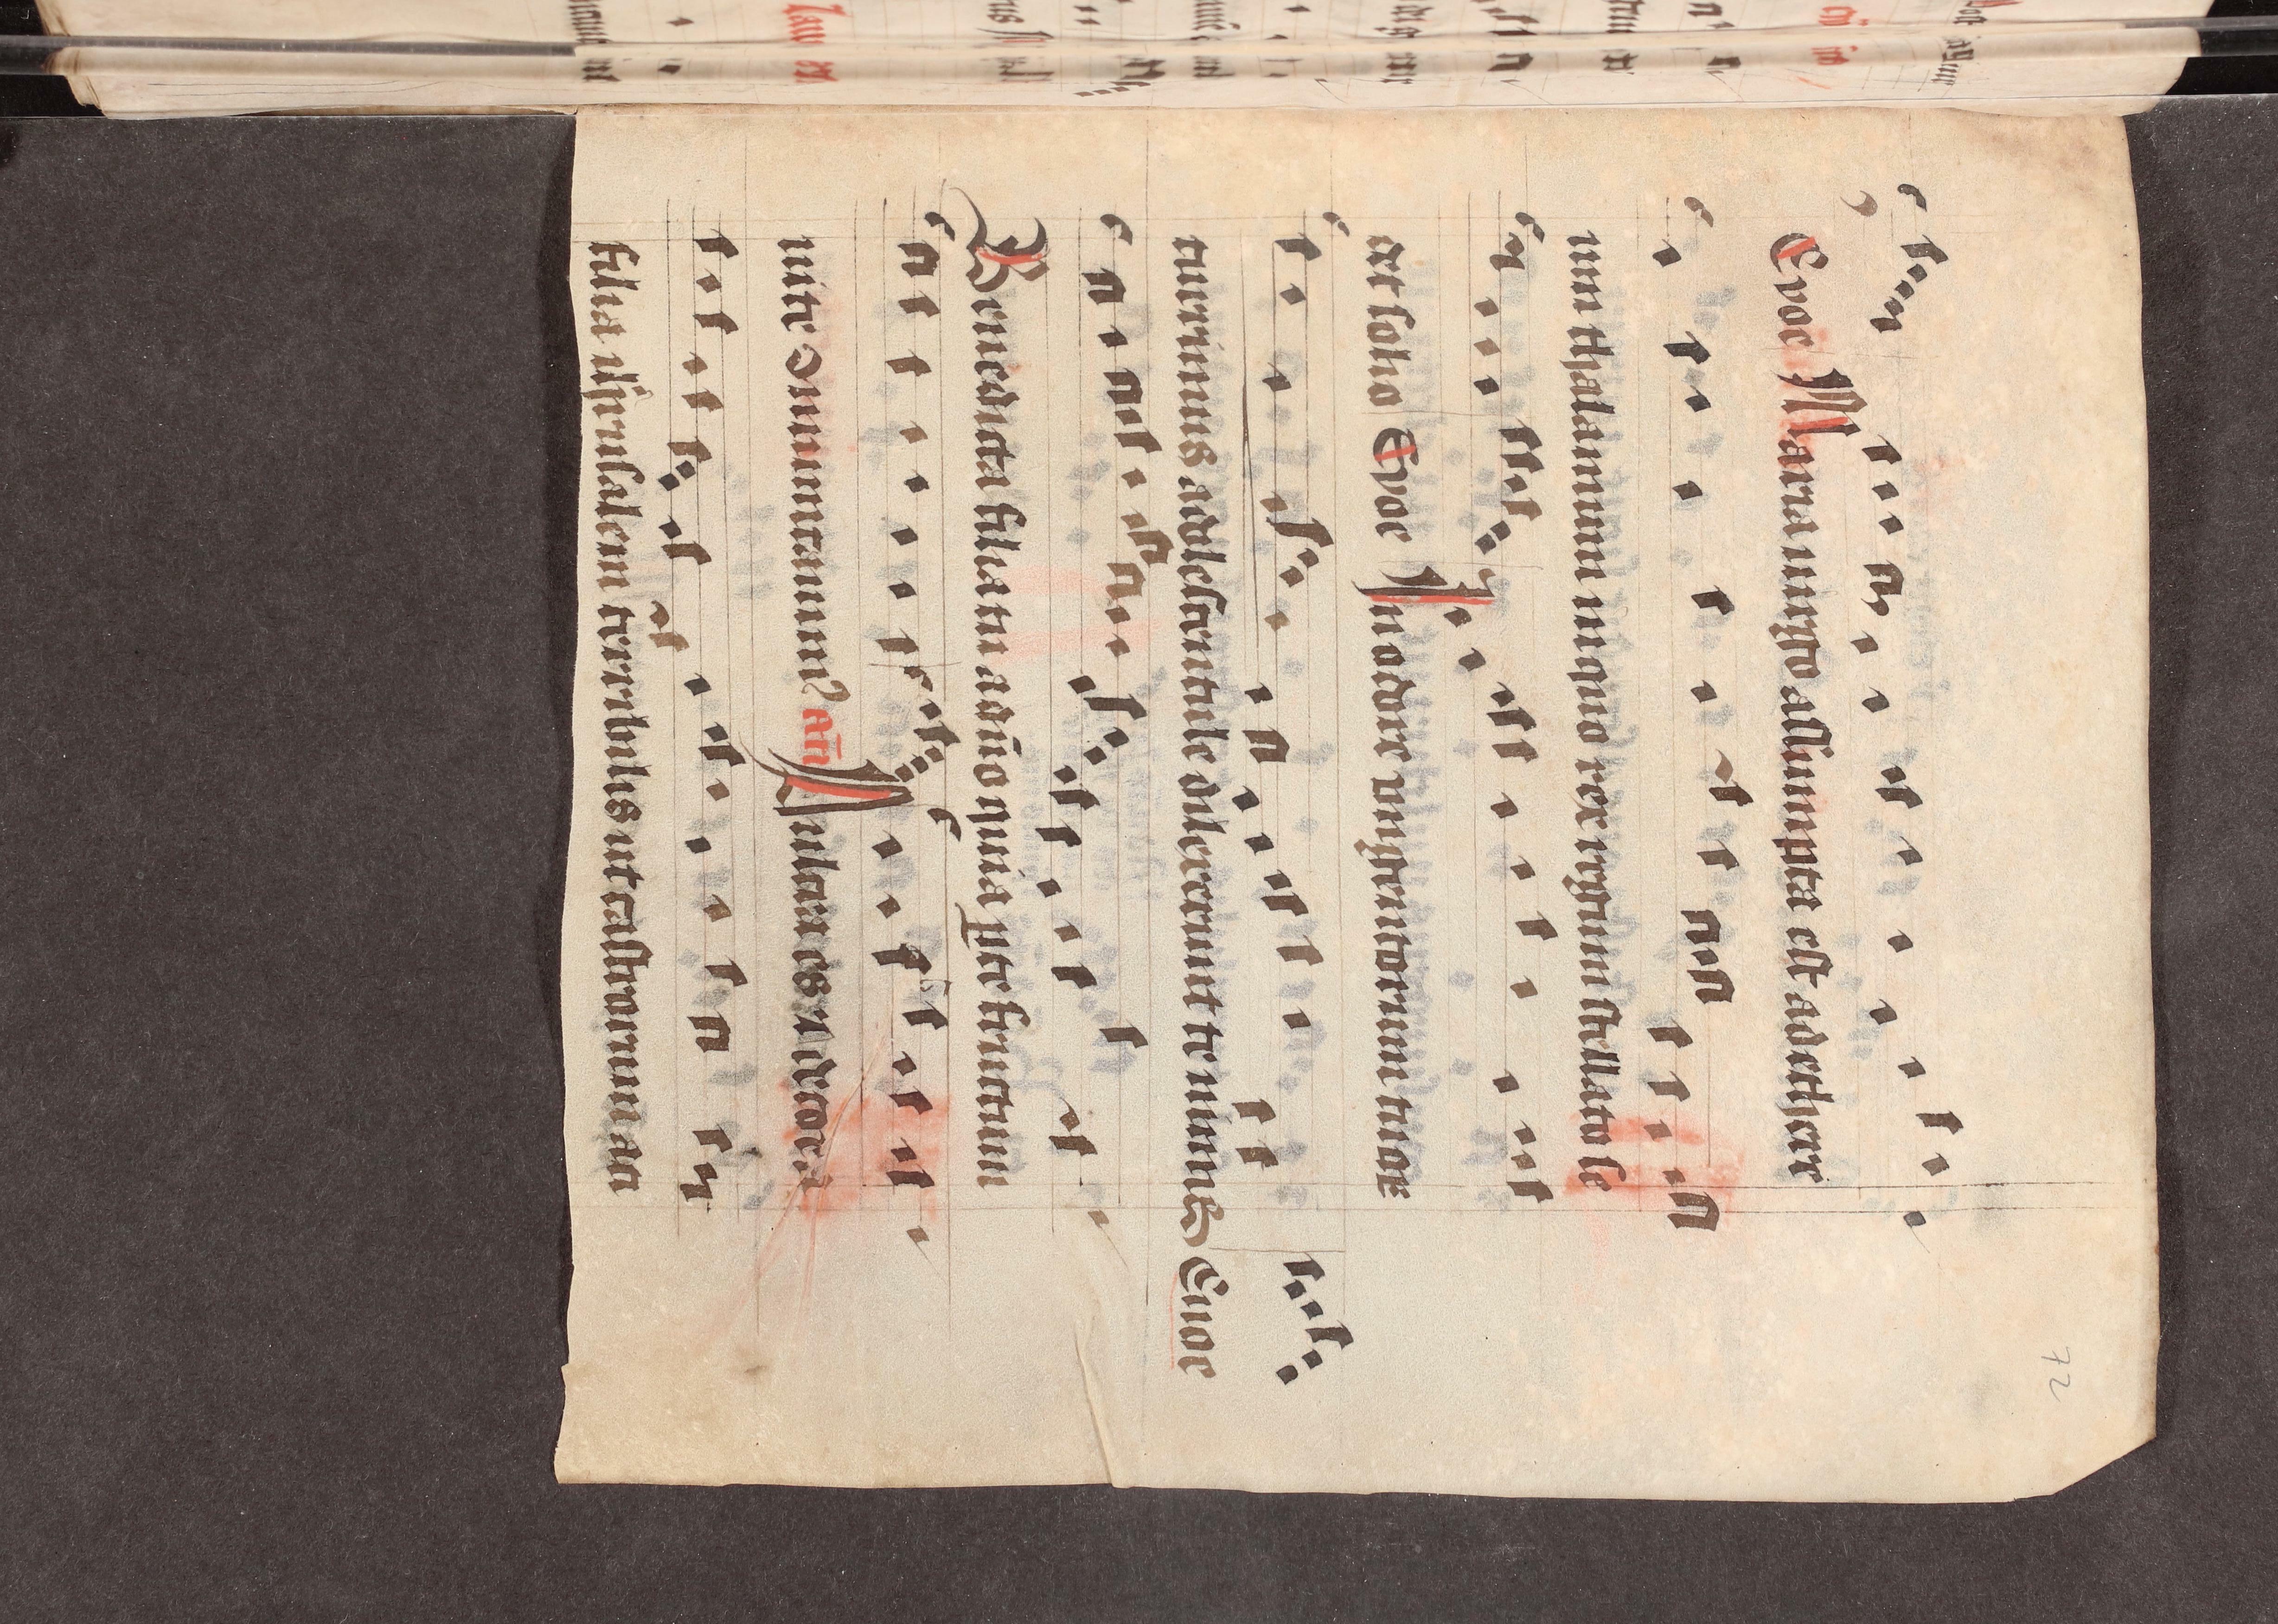 72
Evoe Maria uirgo assumpta est ad ethere
um thalamum in quo rex regum stellato se
det solio Evoe In odore unguentorum tuor
currimus adolescentule dilexerunt te nimis Euoe
Benedicta filia tu a dn̄o quia per te fructum
uite Communicauimus an̄ Pulcra es et decora
filia iherusalem terribilis ut castrorum aci